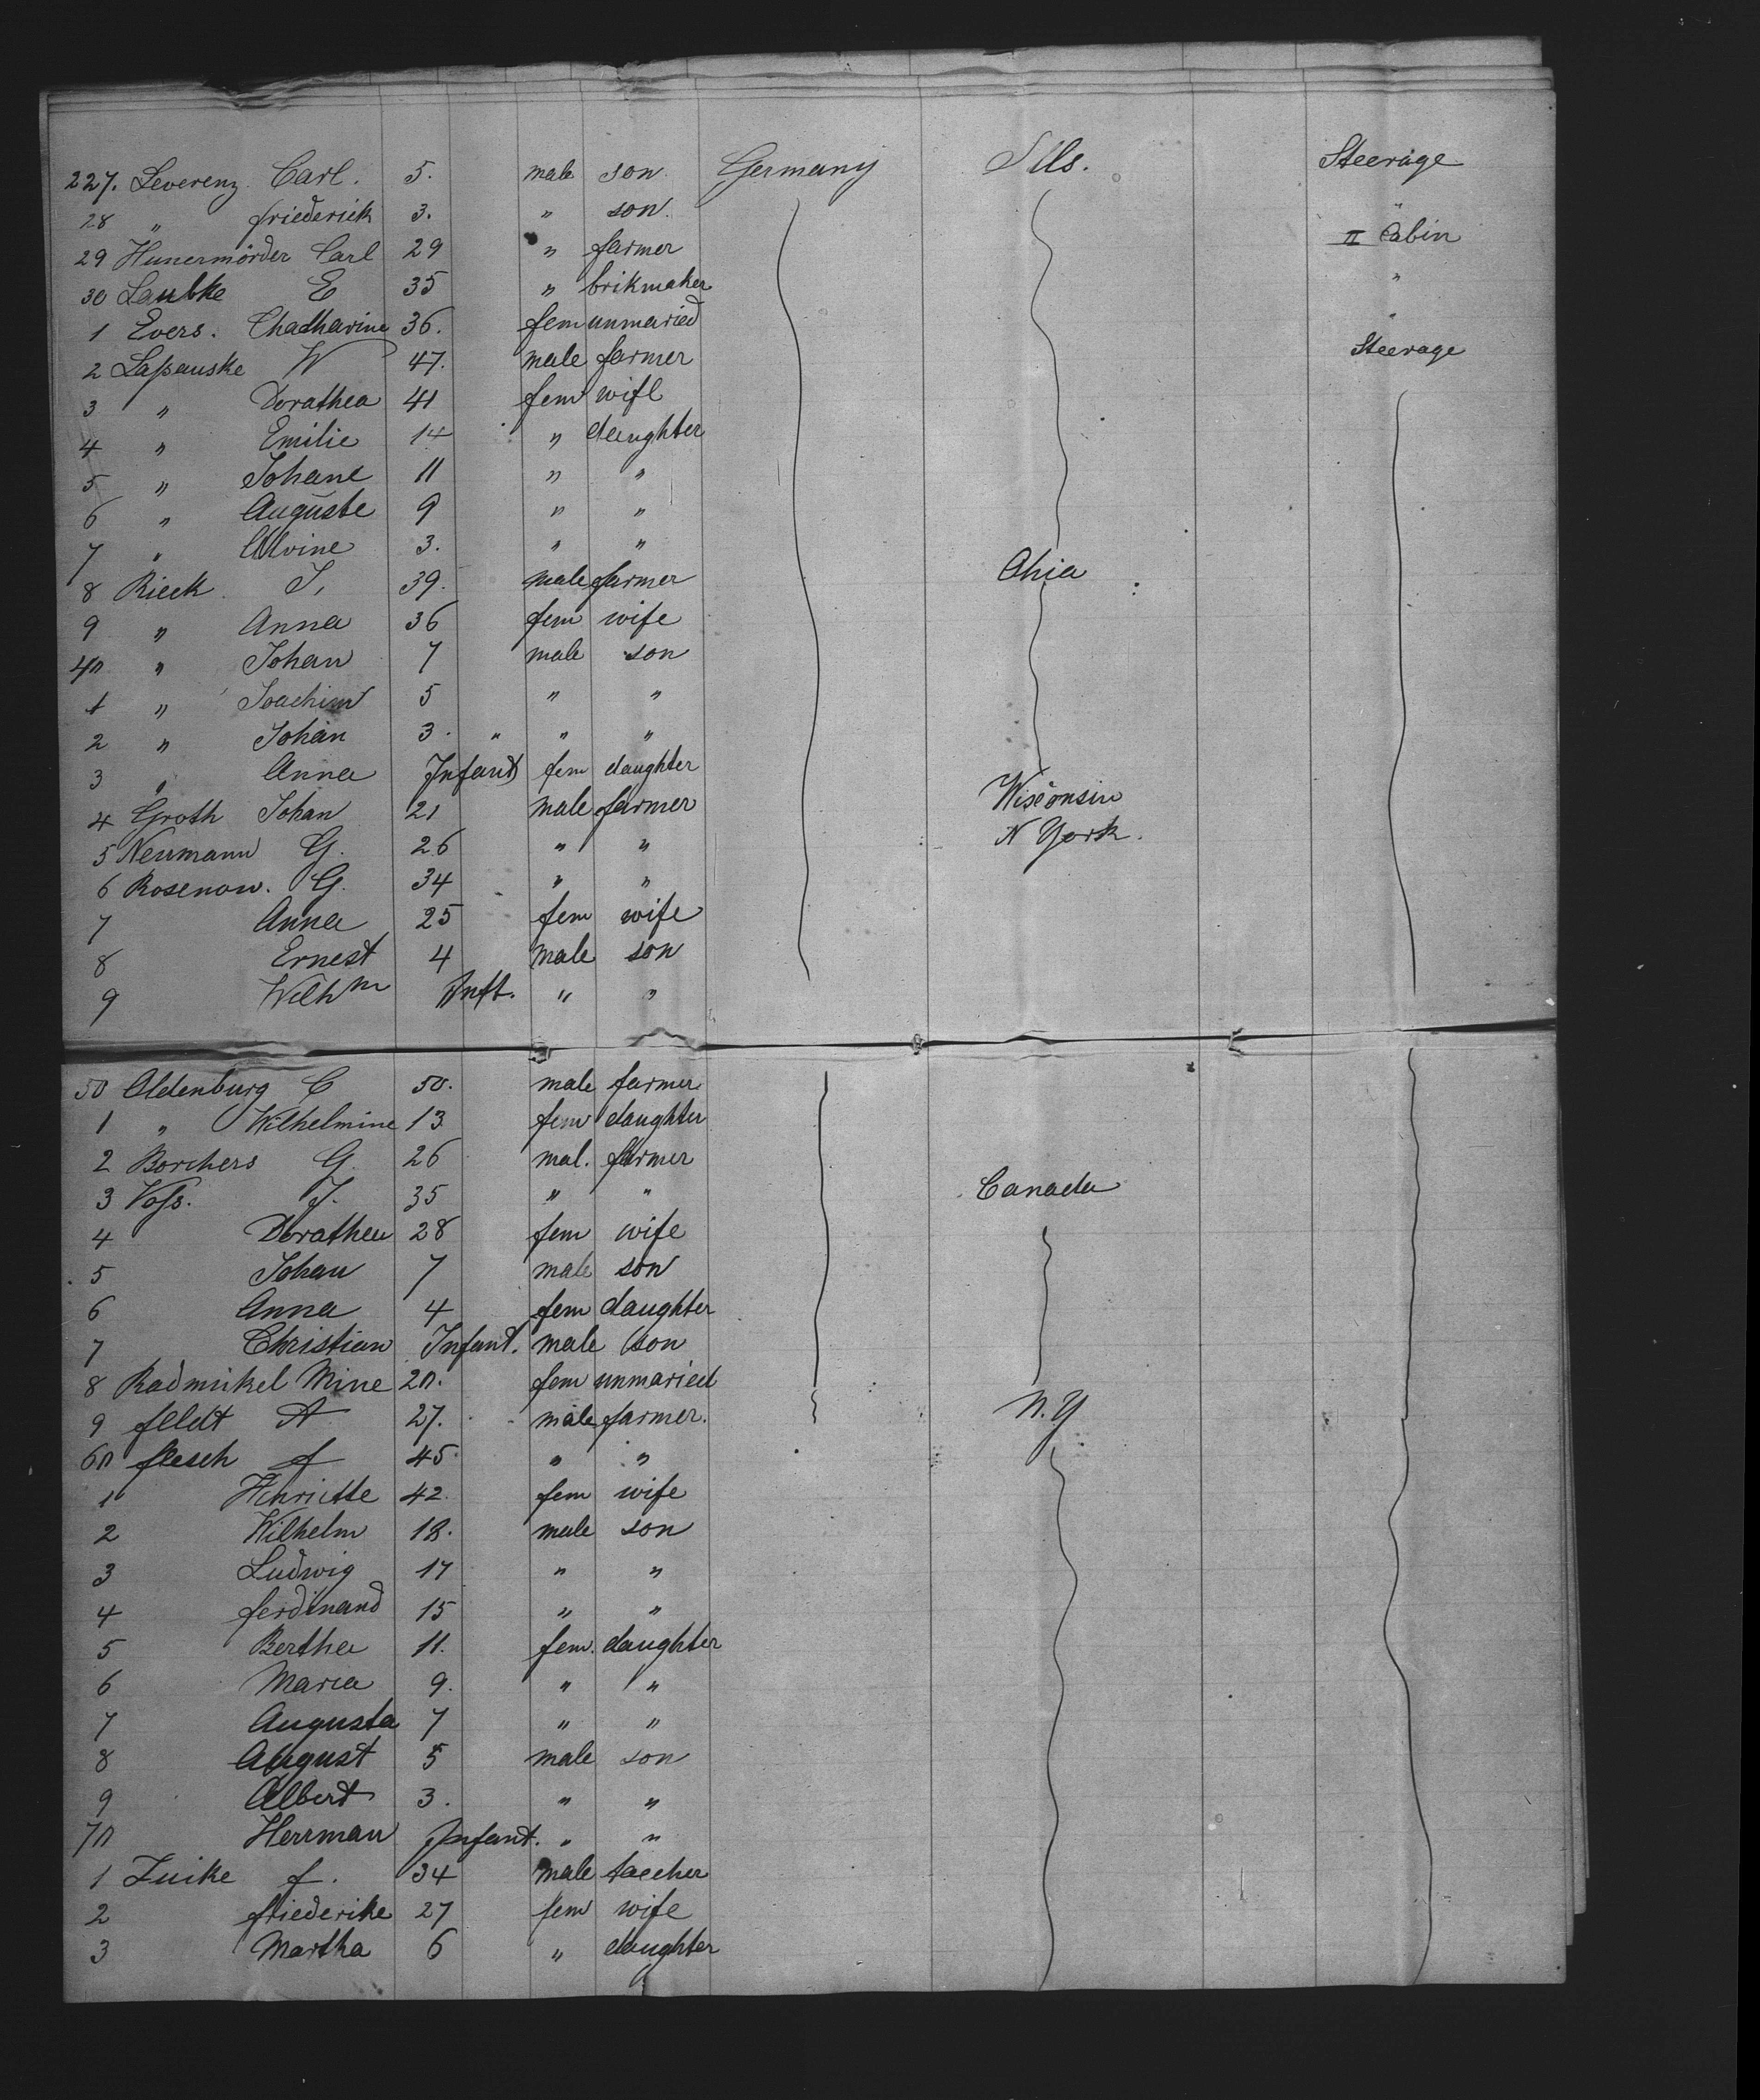 227. Leverenz Carl. 5. male son Germany Ills. Steerage
28 " friederick 3. " son. "
29 Hunermörder Carl 29 " farmer II Cabin
30 Laubke E 35 " brikmaker "
1 Evers. Chatharine 36. fem unmaried "
2 Lapauske W 47. male farmer Steerage
3 " Dorathea 41 fem wife
4 " Emilie 14 " daughter
5 " Johane 11 " "
6 " Auguste 9 " "
7 " Alvine 3. " "
8 Rieck J, 39. male farmer Ohia
9 " Anna 36 fem wife
40 " Johan 7 male son
1 " Joachim 5 " "
2 " Johan 3. " " "
3 " Anna Infant fem daughter
4 Groth Johan 21 male farmer Wisconsin
5 Neumann G. 26 " " N York.
6 Rosenow. G. 34 " "
7 Anna 25 fem wife
8 Ernest 4 male son
9 Wilhm Inft. " "
50 Oldenburg C 50. male farmer
1 " Wilhelmine 13 fem daughter
2 Borchers G 26 mal. farmer
3 Voss. J. 35 " " Canada
4 Dorathea 28 fem wife
5 Johan 7 male son
6 Anna 4 fem daughter
7 Christian Infant. male son
8 Radmikel Mine 20. fem unmaried
9 feldt A 27. male farmer. N.Y
60 flesch f 45. " "
1 Henriette 42. fem wife
2 Wilhelm 18. male son
3 Ludwig 17 " "
4 ferdinand 15 " "
5 Bertha 11. fem. daughter
6 Maria 9. " "
7 Augusta 7 " "
8 August 5 male son
9 Albert 3. " "
70 Herrman Infant. " "
1 Zuike f. 34 male taecher
2 friederike 27 fem wife
3 Martha 6 " daughter